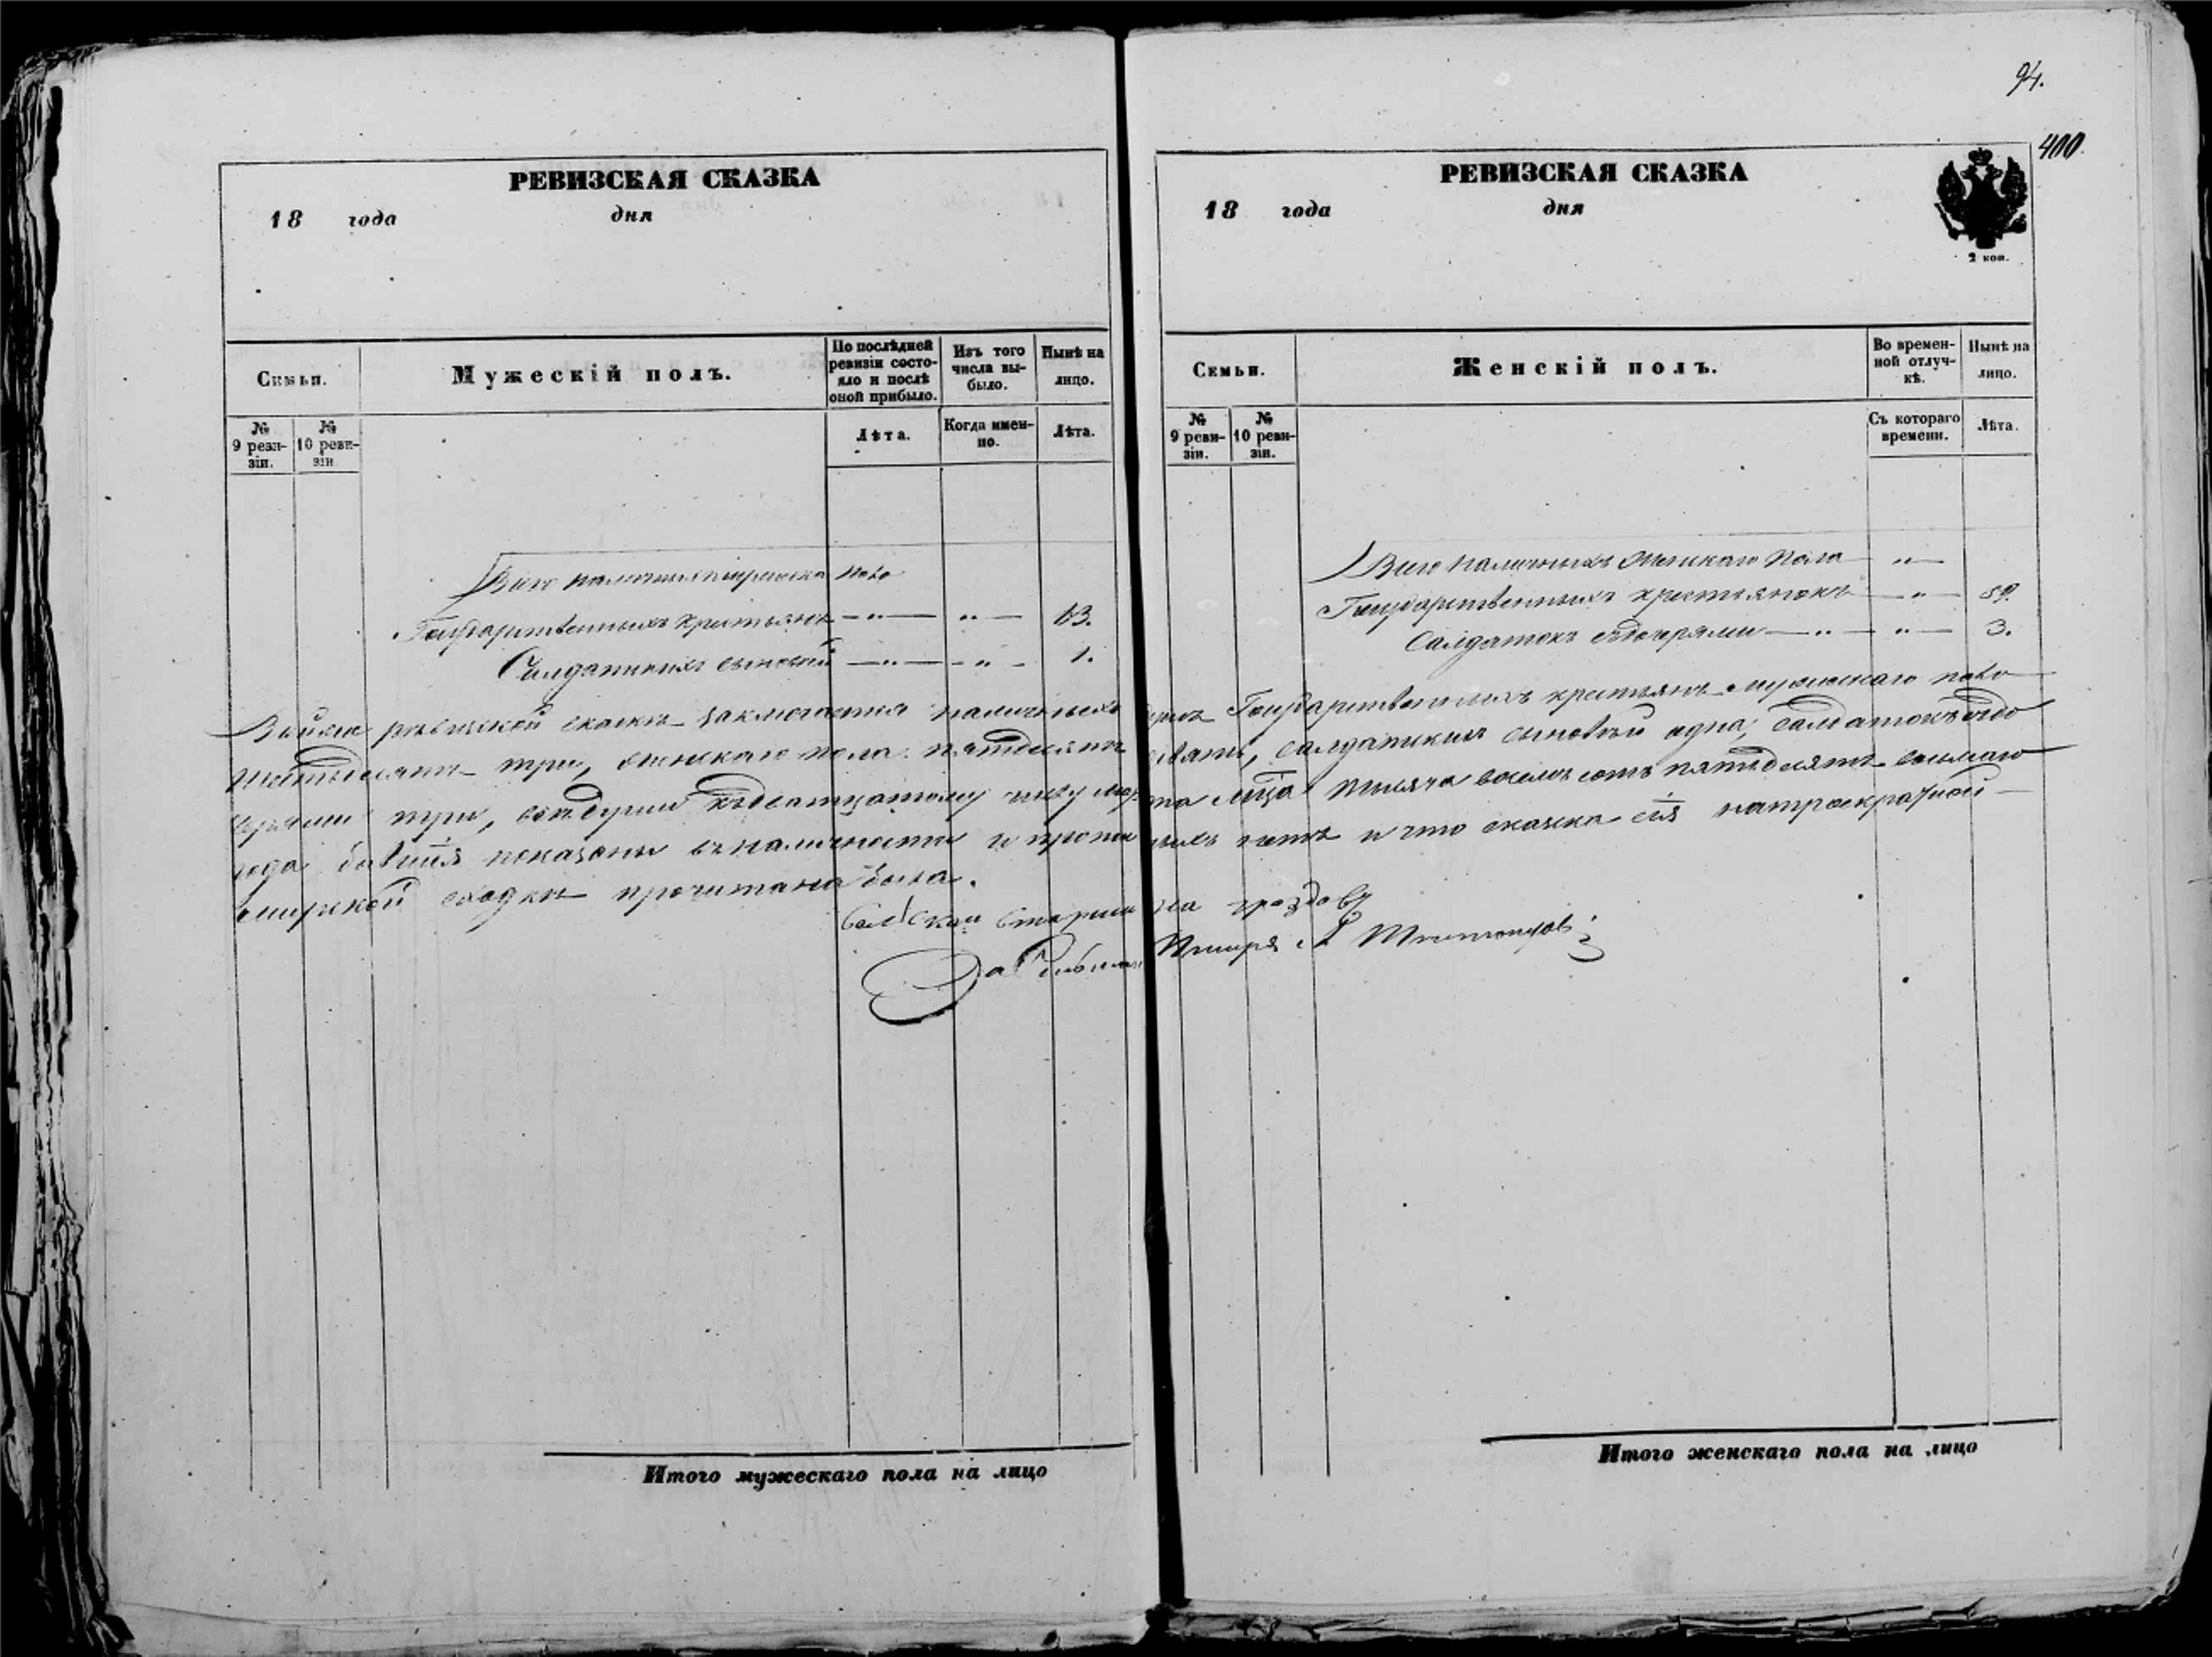 94.
400.
РЕВИЗСКАЯ СКАЗКА
18 года дня
Семьи.
Мужескій полъ.
По послѣдней ревизіи состояло и послѣ оной прибыло.
Изъ того числа выбыло.
Нынѣ на лицо.
№ 9 ревизіи.
№ 10 ревизіи.
Лѣта.
Когда именно.
Лѣта.
Всего наличныхъ мужеска пола
Государственныхъ крестьянъ — „ — „ — 63.
Салдатскихъ сыновей — „ — „ — 1.
РЕВИЗСКАЯ СКАЗКА
18 года дня
2 коп.
Семьи.
Женскій полъ.
Во временной отлучкѣ.
Нынѣ на лицо.
№ 9 ревизіи.
№ 10 ревизіи.
Съ котораго времени.
Лѣта.
Всего наличныхъ женскаго пола — „ —
Государственныхъ крестьянокъ — „ — 59.
Салдатокъ съ дочерями — „ — „ — 3.
ревизской сказкѣ заключается наличныхъ душъ Государственныхъ крестьянъ мужескаго пола
шестьдесятъ три, женскаго пола пятьдесятъ девять, салдатскихъ сыновей одна, салдатокъ съ до
черями три, марта мѣсяца тысяча восемь сотъ пятьдесятъ восьмаго
года показаны въ наличности и нѣтъ и что сказка сія на троекратной
мирской сходкѣ прочитана была.
Сельскаи Старшина
Писаря
Итого мужескаго пола на лицо
Итого женскаго пола на лицо